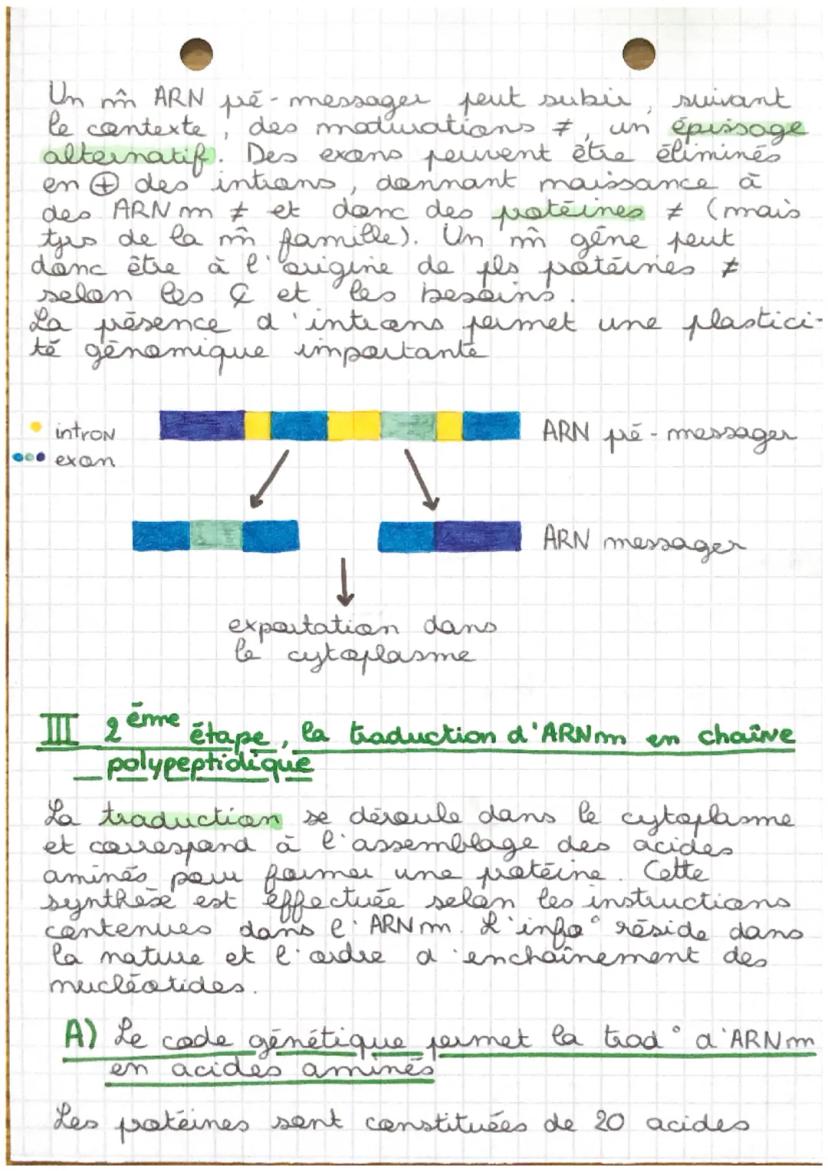 Un m̂ ARN pré-messager peut subir, suivant
le contexte, des maturations ≠, un épissage
alternatif. Des exons peuvent être éliminés
en ⊕ des introns, donnant naissance à
des ARNm ≠ et donc des protéines ≠ (mais
tjrs de la m̂ famille). Un m̂ gène peut
donc être à l'origine de pls protéines ≠
selon les ₵ et les besoins.
La présence d'introns permet une plastici-
té génomique importante
intron
exon
ARN pré-messager
ARN messager
exportation dans
le cytoplasme
III 2ème étape, la traduction d'ARNm en chaîne
polypeptidique
La traduction se déroule dans le cytoplasme
et correspond à l'assemblage des acides
aminés pour former une protéine. Cette
synthèse est effectuée selon les instructions
contenues dans l'ARNm. L'info° réside dans
la nature et l'ordre d'enchaînement des
nucléotides.
A) Le code génétique permet la trad° d'ARNm
en acides aminés
Les protéines sont constituées de 20 acides